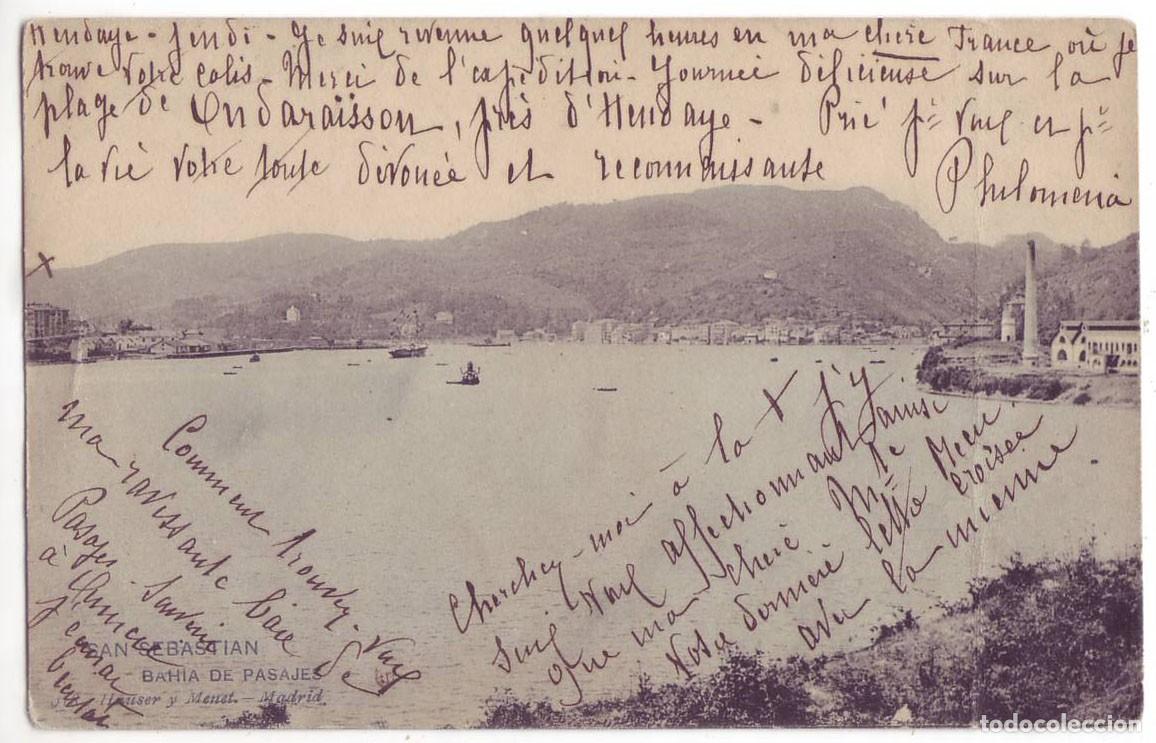 Hendaye - Jeudi - Je suis revenue quelques heures en ma chère France où je
trouve votre colis - Merci de l'expédition - Journée délicieuse sur la
plage de Ondaraïsson, près d'Hendaye - Prié pr vous et pr
la vie votre toute dévouée et reconnaissante
Philomena
x
Comment trouvez-vous
ma ravissante baie de
Pasajes -
à
Cherchez-moi à la x j'y
suis vous affectionnant
que ma chère Mme de
Notre dernière lettre
croisée
avec la mienne
SAN SEBASTIAN
BAHIA DE PASAJES
Hauser y Menet. - Madrid
todocoleccion